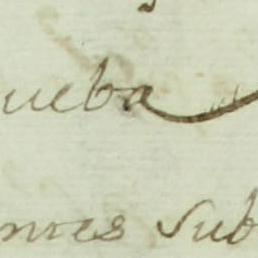 ueba
mes sub